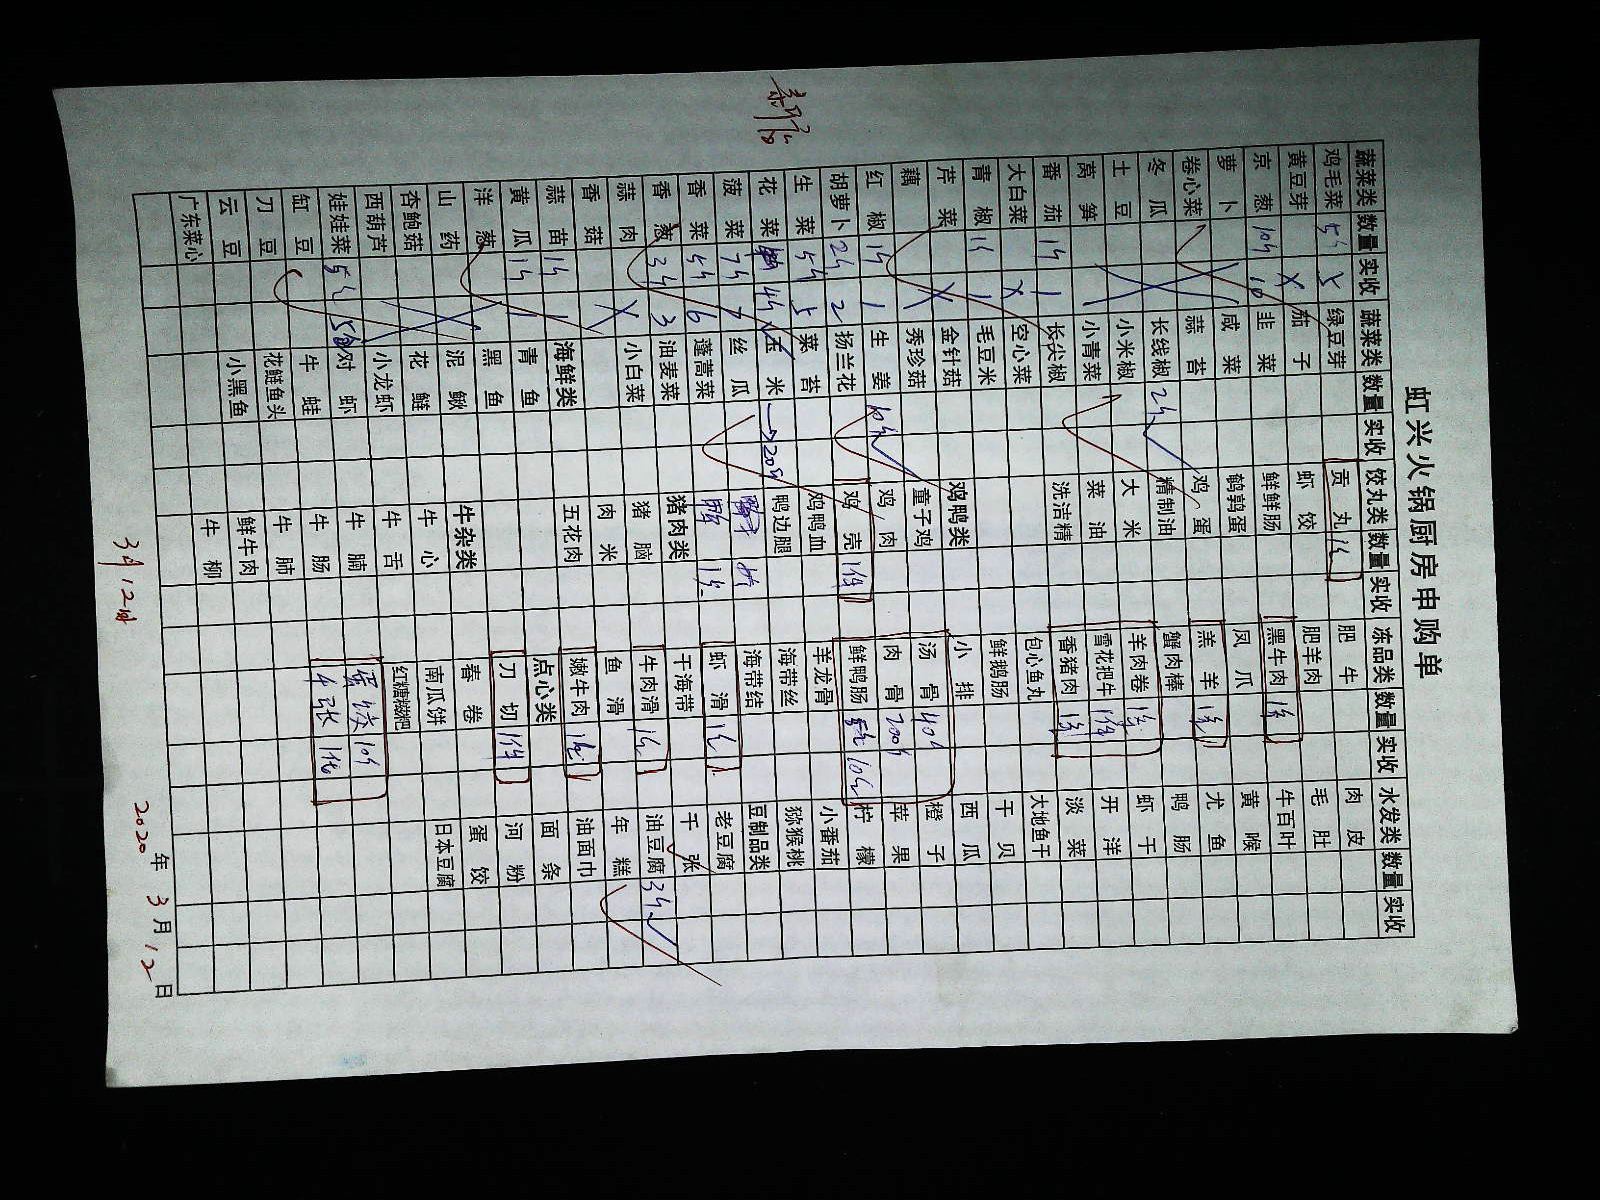 虹兴火锅厨房申购单
蔬菜类 数量 实收 蔬菜类 数量 实收 饺丸类 数量 实收 冻品类 数量 实收 水发类 数量 实收
鸡毛菜 5斤 5 绿豆芽 贡丸 肥牛 肉皮
黄豆芽 X 茄子 虾饺 肥羊肉 毛肚
京葱 10斤 10 韭菜 鲜鲜肠 黑牛肉 牛百叶
萝卜 咸菜 鹌鹑蛋 凤爪 黄喉
卷心菜 蒜苔 鸡蛋 羔羊 尤鱼
冬瓜 长线椒 2斤 精制油 蟹肉棒 鸭肠
土豆 小米椒 大米 羊肉卷 虾干
莴笋 小青菜 菜油 雪花把牛 开洋
番茄 1斤 1 长尖椒 洗洁精 香猪肉 淡菜
大白菜 X 空心菜 包心鱼丸 大地鱼干
青椒 1斤 1 毛豆米 鲜鹅肠 干贝
芹菜 金针菇 鸡鸭类 小排 西瓜
藕 X 秀珍菇 童子鸡 汤骨 40斤 橙子
红椒 1斤 1 生姜 10斤 鸡肉 肉骨 200斤 苹果
胡萝卜 2斤 2 扬兰花 鸡壳 1件 鲜鸭肠 柠檬
生菜 5斤 5 菜苔 鸡鸭血 羊龙骨 小番茄
花菜 4斤 玉米 →20斤 鸭边腿 海带丝 猕猴桃
菠菜 7斤 7 丝瓜 海带结 豆制品类
香菜 5斤 6 蓬蒿菜 虾滑 老豆腐
香葱 3斤 3 油麦菜 猪肉类 干海带 千张
蒜肉 小白菜 猪脑 牛肉滑 油豆腐 3斤
香菇 X 肉米 鱼滑 年糕
蒜苗 1斤 1 海鲜类 五花肉 嫩牛肉 油面巾
黄瓜 1斤 1 青鱼 点心类 面条
洋葱 黑鱼 刀切 1件 河粉
山药 泥鳅 牛杂类 春卷 蛋饺
杏鲍菇 花鲢 牛心 南瓜饼 日本豆腐
西葫芦 小龙虾 牛舌 红糖糍粑
娃娃菜 5斤 对虾 牛腩 蛋饺 10斤
缸豆 牛蛙 牛肠
刀豆 花鲢鱼头 牛肺
云豆 小黑鱼 鲜牛肉
广东菜心 牛柳
3月12日
2020年3月12日